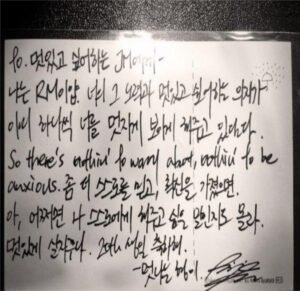 To. 멋있고 싶어하는 JM에게-
나는 RM이얌. 너의 그 노력과 멋있고 싶어하는 의지가
이미 하나씩 너를 멋지게 보이게 해주고 있단다.
So there's nothin' to worry about, nothin' to be
anxious. 좀 더 스스로를 믿고, 확신을 가졌으면.
아, 어쩌면 나 스스로에게 해주고 싶은 말인지도 몰라.
멋있게 살자구나. 생일 축하해.
-멋나는 형이.